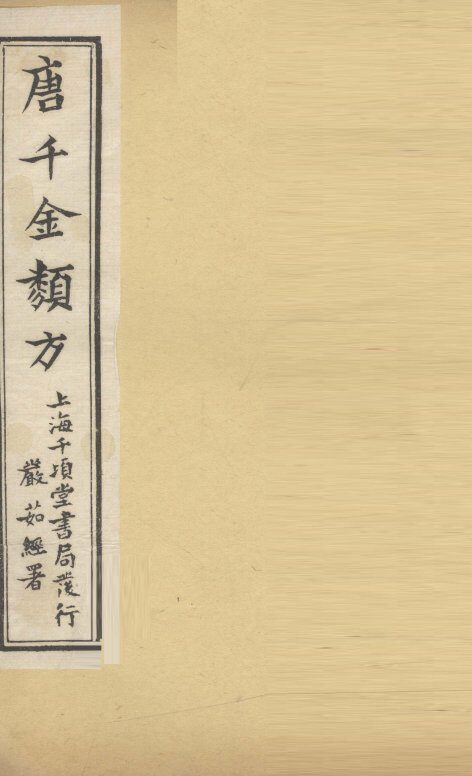 唐千金類方
上海千頃堂書局發行
嚴茹經署